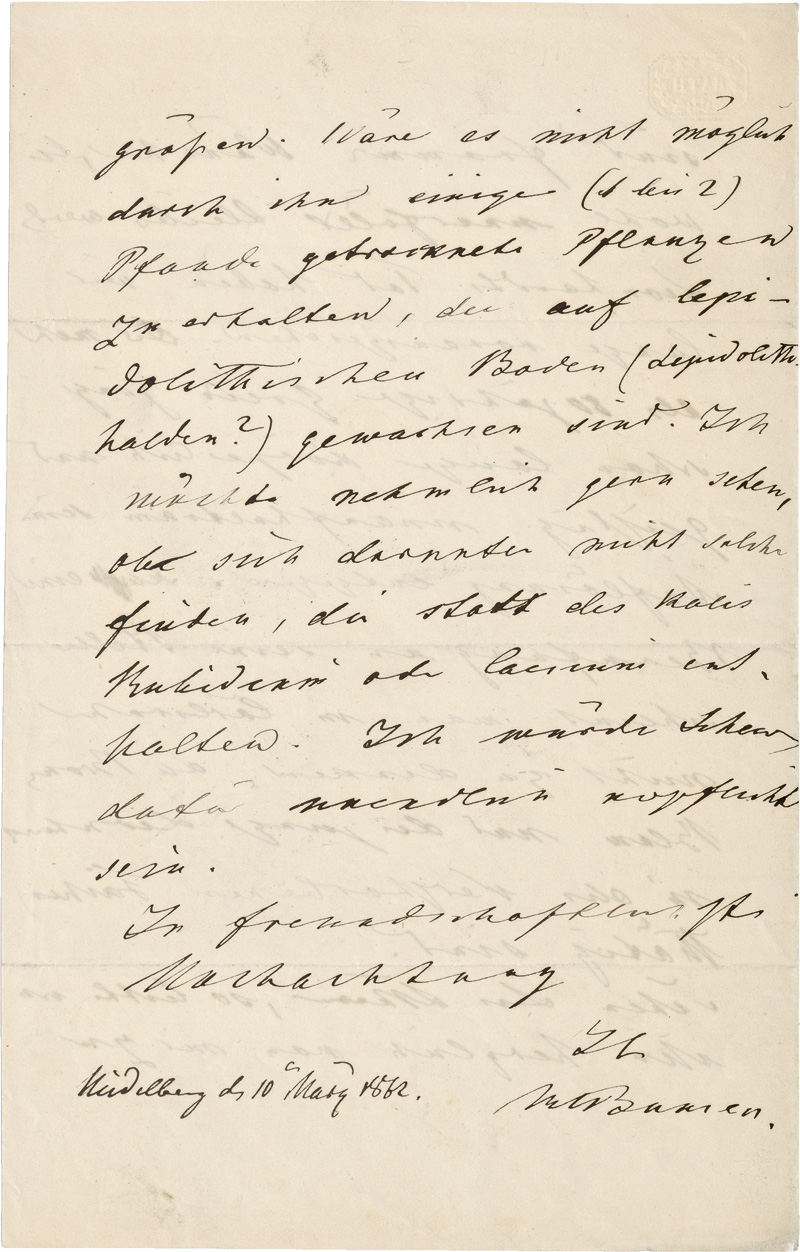 grüßen. Wäre es nicht möglich
durch ihn einige (1 bis 2)
Pfunde getrocknete Pflanzen
zu erhalten, die auf lepi-
dolithischen Boden (Lepidolith-
halden?) gewachsen sind. Ich
möchte nehmlich gern sehen,
ob sich darunter nicht solche
finden, die statt des Kalis
Rubidium oder Caesium ent-
halten. Ich würde Ihnen
dafür unendlich verpflichtet
sein.
In freundschaftlichster
Hochachtung
Ihr
RWBunsen.
Heidelberg d 10 März 1862.